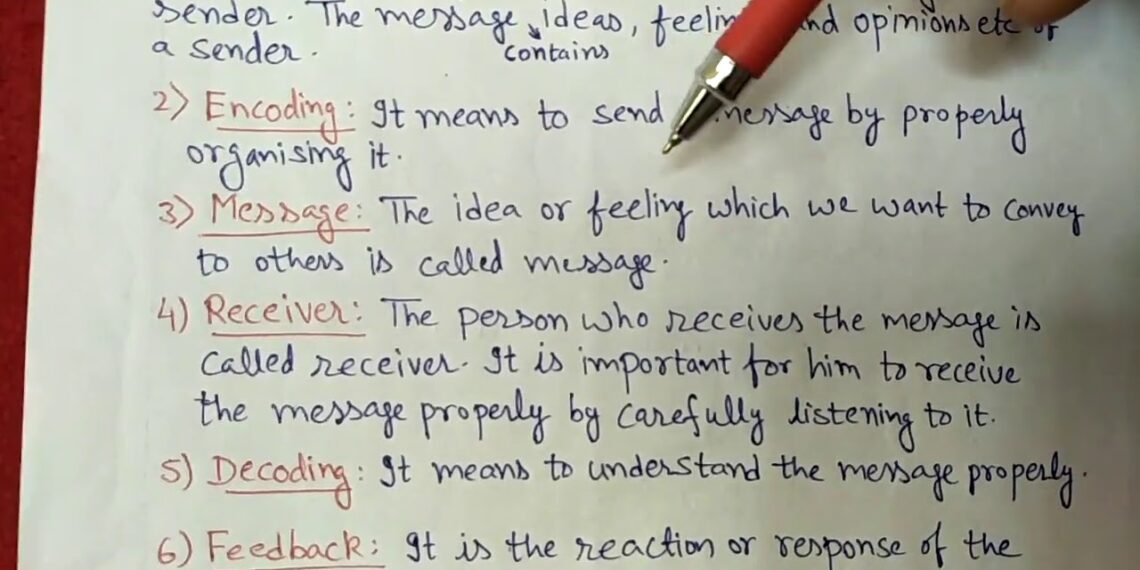 sender. The message ideas, and opinions etc of
a sender. contains
2) Encoding: It means to send message by properly
organising it.
3) Message: The idea or feeling which we want to convey
to others is called message.
4) Receiver: The person who receives the message is
called receiver. It is important for him to receive
the message properly by carefully listening to it.
5) Decoding: It means to understand the message properly.
6) Feedback: It is the reaction or response of the